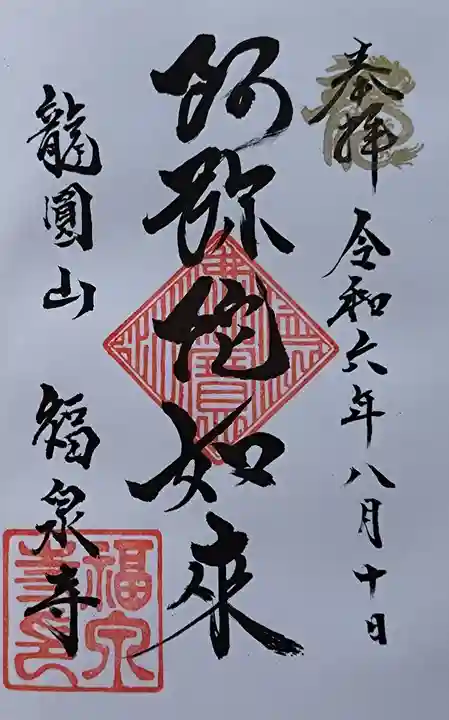 奉拝
令和六年八月十日
阿弥陀如来
龍圓山
福泉寺